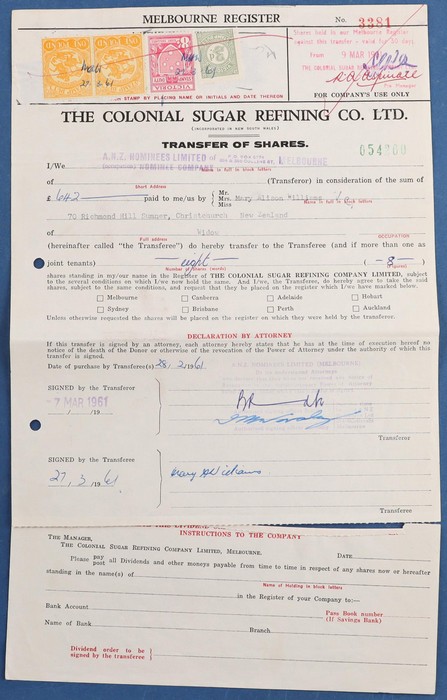 MELBOURNE REGISTER
No. 3381
Shares held in our Melbourne Register
against this transfer - valid for 30 days
From 9 MAR 1961
THE COLONIAL SUGAR
FOR COMPANY'S USE ONLY
STAMP BY PLACING NAME OR INITIALS AND DATE THEREON
VICTORIA
THE COLONIAL SUGAR REFINING CO. LTD.
(INCORPORATED IN NEW SOUTH WALES)
TRANSFER OF SHARES.
054200
I/We A.N.Z. NOMINEES LIMITED of MELBOURNE
NOMINEE COMPANY
Name in full in block letters
of (Transferor) in consideration of the sum
Short Address
of £ 642 paid to me/us by Mr. Mrs. Miss Mary Alison Williams
Name in full in block letters
70 Richmond Hill Sumner, Christchurch New Zealand
of Widow
Full address OCCUPATION
(hereinafter called "the Transferee") do hereby transfer to the Transferee (and if more than one as
joint tenants) eight (-8-)
Number of Shares (words) (figures)
shares standing in my/our name in the Register of THE COLONIAL SUGAR REFINING COMPANY LIMITED, subject
to the several conditions on which I/we now hold the same. And I/we, the Transferee, do hereby agree to take the said
shares, subject to the same conditions, and request that they be placed on the register which I/we have marked below.
Melbourne Canberra Adelaide Hobart
Sydney Brisbane Perth Auckland
Unless otherwise requested the shares will be placed on the register on which they were held by the transferor.
DECLARATION BY ATTORNEY
If this transfer is signed by an attorney, each attorney hereby states that he has at the time of execution hereof no
notice of the death of the Donor or otherwise of the revocation of the Power of Attorney under the authority of which this
transfer is signed.
Date of purchase by Transferee(s) 28/2/1961
A.N.Z. NOMINEES LIMITED (MELBOURNE)
SIGNED by the Transferor
7 MAR 1961
/ /19
Transferor
SIGNED by the Transferee
27/3/1961
Mary A Williams
Transferee
INSTRUCTIONS TO THE COMPANY
THE MANAGER,
THE COLONIAL SUGAR REFINING COMPANY LIMITED, MELBOURNE. DATE
Please pay post all Dividends and other moneys payable from time to time in respect of any shares now or hereafter
standing in the name(s) of
Name of Holding in block letters
in the Register of your Company to:—
Bank Account Pass Book number
(If Savings Bank)
Name of Bank Branch
Dividend order to be
signed by the transferee